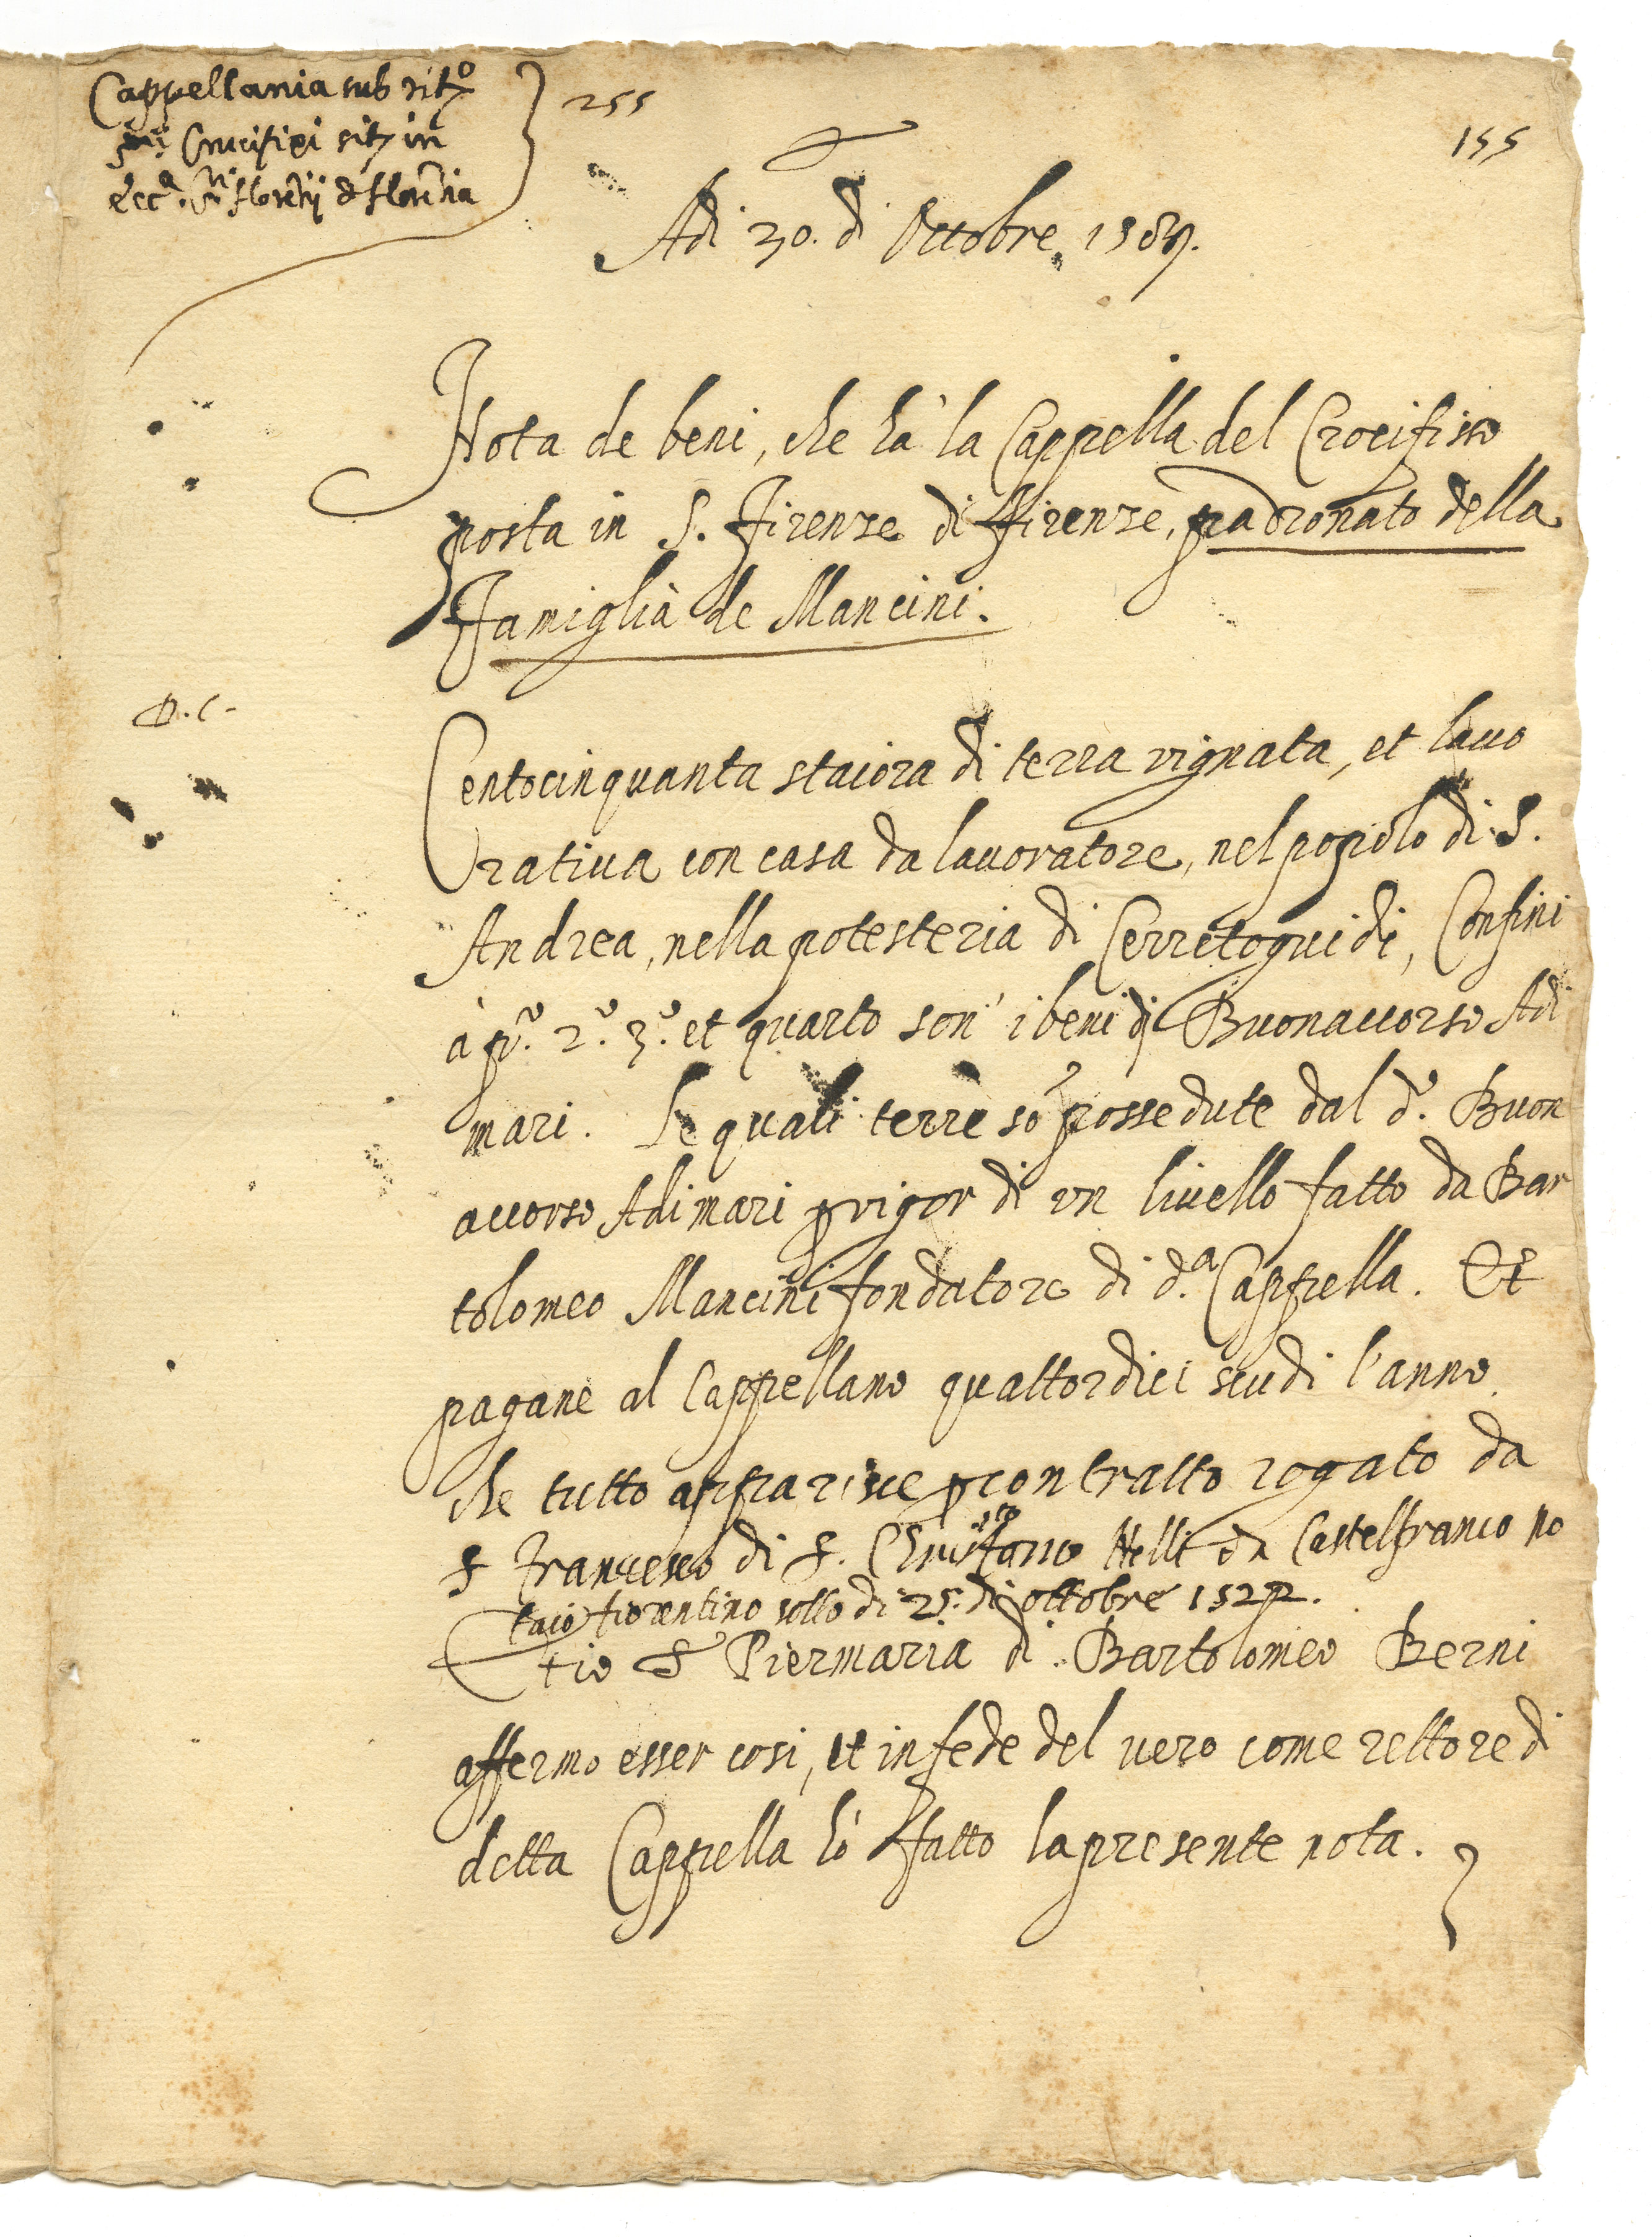 Cappellania sub tit.o
Crucifixi sit. in
Ecc.a S.ti Flor.tij de Flor.tia
255
155
Adi 30. di Ottobre 1589.
Nota de beni, che hà la Cappella del Crocifisso
posta in S. Firenze di Firenze, padronato della
Famiglia de Mancini.
D. C.
Centocinquanta staiora di terra vignata, et lauo
ratiua con casa da lauoratore, nel popolo di S.
Andrea, nella potesteria di Cerretoguidi, Confini
à p.o 2.o 3.o et quarto son' i beni di Buonaccorso Adi
mari. Le quali terre sō possedute dal d.o Buon
accorso Adimari p vigor di vn liuello fatto da Bar
tolomeo Mancini fondatore di d.a Cappella. Et
pagane al Cappellano quattordici scudi l'anno
che tutto apparisce p contratto rogato da
s Francesco di s. Nelli da Castelfranco no
taio fiorentino sotto di 25. di ottobre 1522.
Et io Piermaria di Bartolomeo Berni
affermo esser cosi, et in fede del uero come rettore di
detta Cappella hò fatto la presente nota.